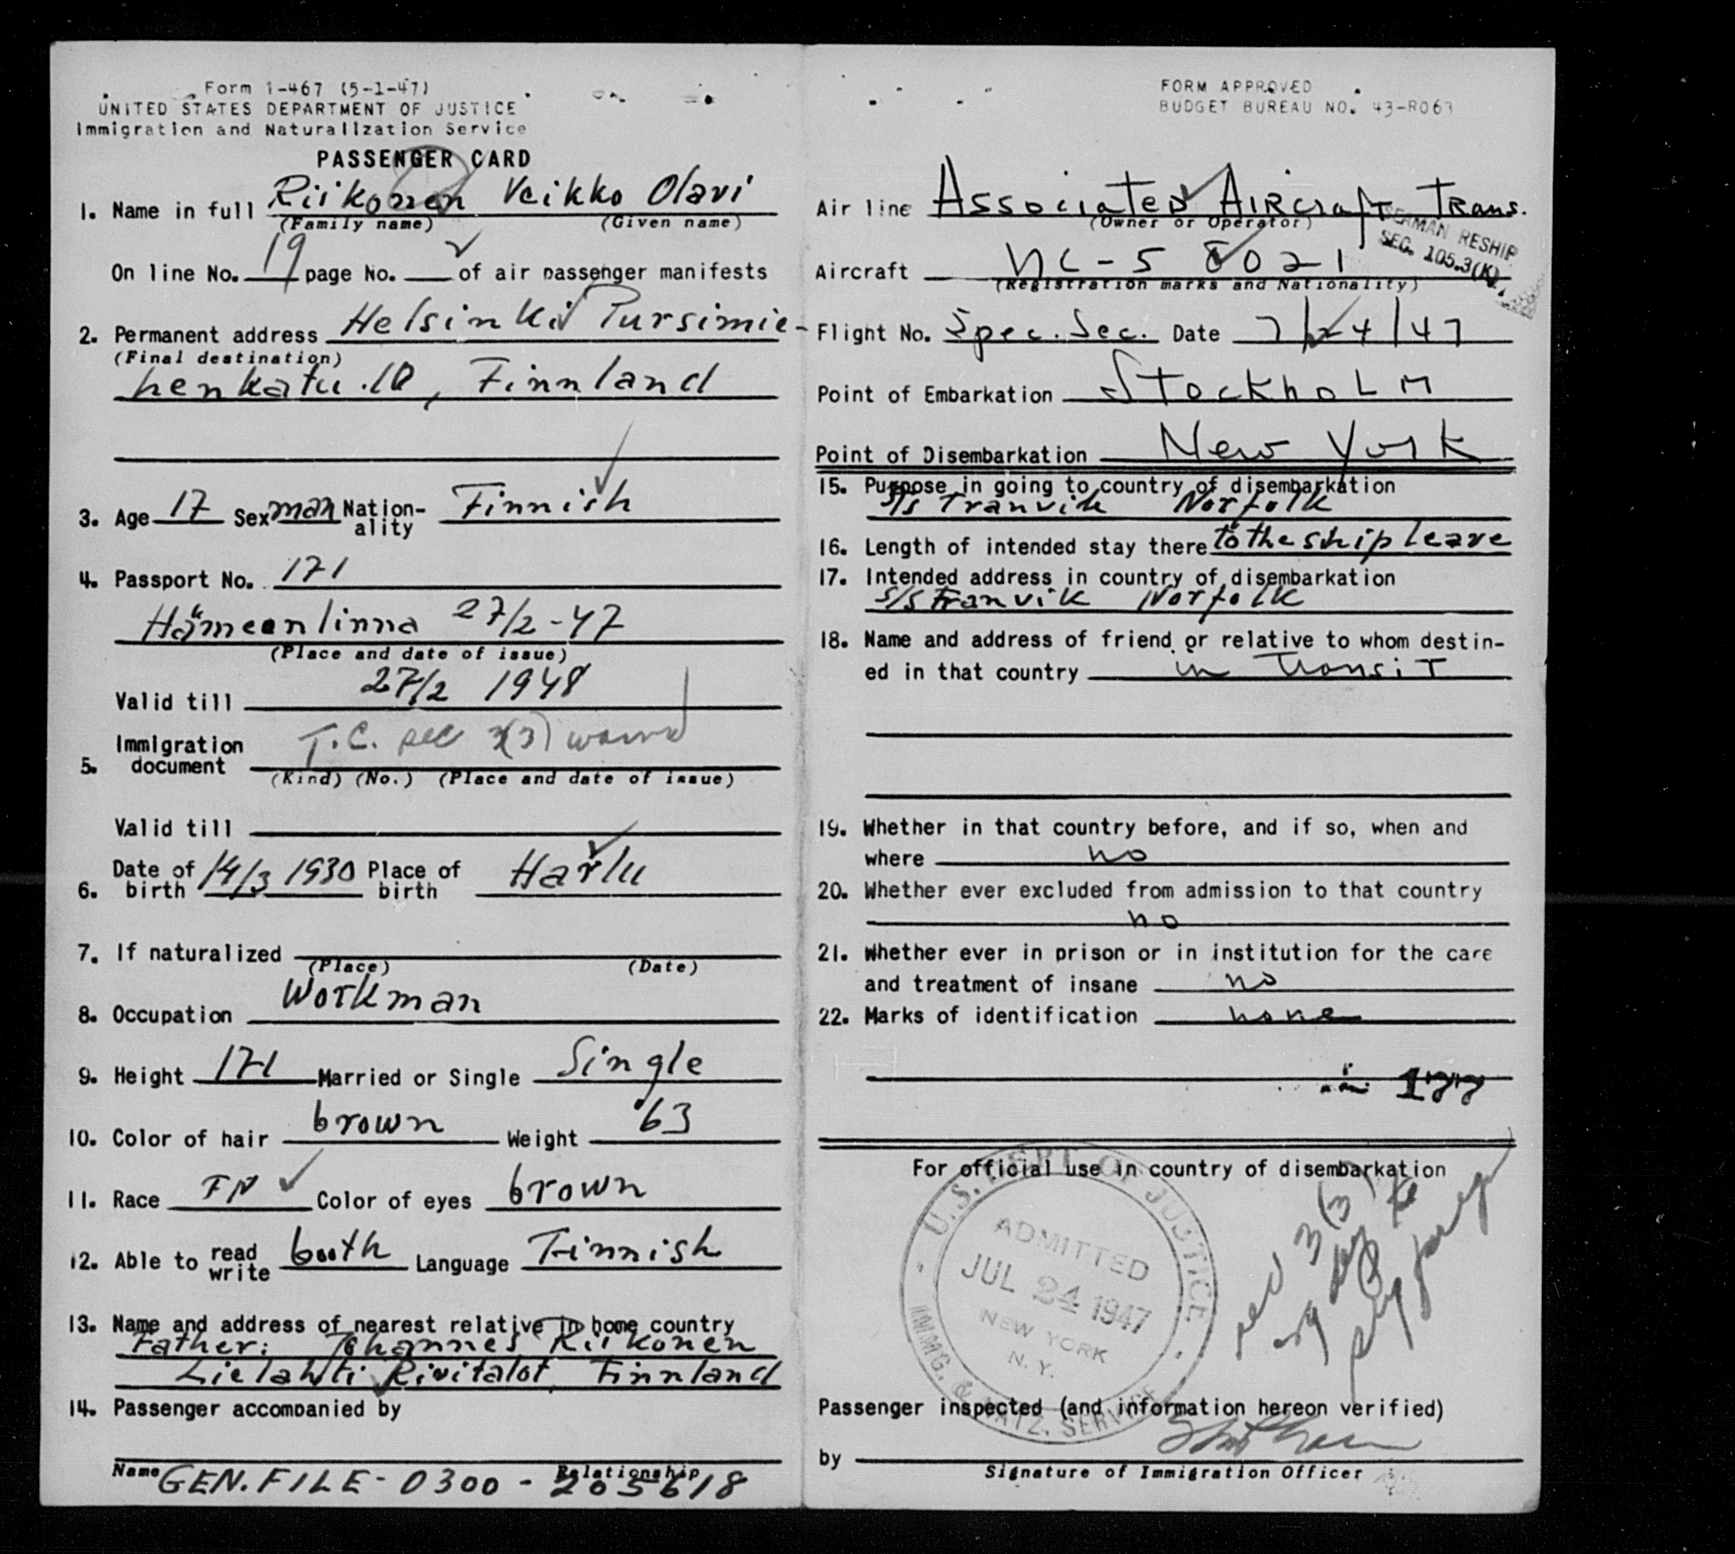 Form I-467 (5-1-47)
UNITED STATES DEPARTMENT OF JUSTICE
Immigration and Naturalization Service
PASSENGER CARD
1. Name in full Riikonen Veikko Olavi
(Family name) (Given name)
On line No. 19 page No. of air passenger manifests
2. Permanent address Helsinki Pursimie-
(Final destination)
henkatu 10, Finnland
3. Age 17 Sex man Nation-ality Finnish
4. Passport No. 171
Hämeenlinna 27/2-47
(Place and date of issue)
Valid till 27/2 1948
5. Immigration document T.C. sec 3(3) waived
(Kind) (No.) (Place and date of issue)
Valid till
6. Date of birth 14/3 1930 Place of birth Harlu
7. If naturalized
(Place) (Date)
8. Occupation Workman
9. Height 171 Married or Single Single
10. Color of hair brown Weight 63
11. Race FN Color of eyes brown
12. Able to read write booth Language Finnish
13. Name and address of nearest relative in home country
Father: Johannes Riikonen
Lielahti Rivitalot Finnland
14. Passenger accompanied by
Name Relationship
GEN. FILE - 0300 - 205618
FORM APPROVED
BUDGET BUREAU NO. 43-R063
Air line Associated Aircraft Trans.
(Owner or Operator)
SEAMAN RESHIP
SEC. 105.3(K)
Aircraft NC-58021
(Registration marks and Nationality)
Flight No. Spec. Sec. Date 7/24/47
Point of Embarkation Stockholm
Point of Disembarkation New York
15. Purpose in going to country of disembarkation
S/s Tranvik Norfolk
16. Length of intended stay there to the ship leave
17. Intended address in country of disembarkation
S/S Tranvik Norfolk
18. Name and address of friend or relative to whom destin-
ed in that country in Transit
19. Whether in that country before, and if so, when and
where no
20. Whether ever excluded from admission to that country
no
21. Whether ever in prison or in institution for the care
and treatment of insane no
22. Marks of identification none
177
For official use in country of disembarkation
U.S. DEPT OF JUSTICE
ADMITTED
JUL 24 1947
NEW YORK
N.Y.
IMMIG. & NATZ. SERVICE
sec 3(3)
Passenger inspected (and information hereon verified)
by
Signature of Immigration Officer